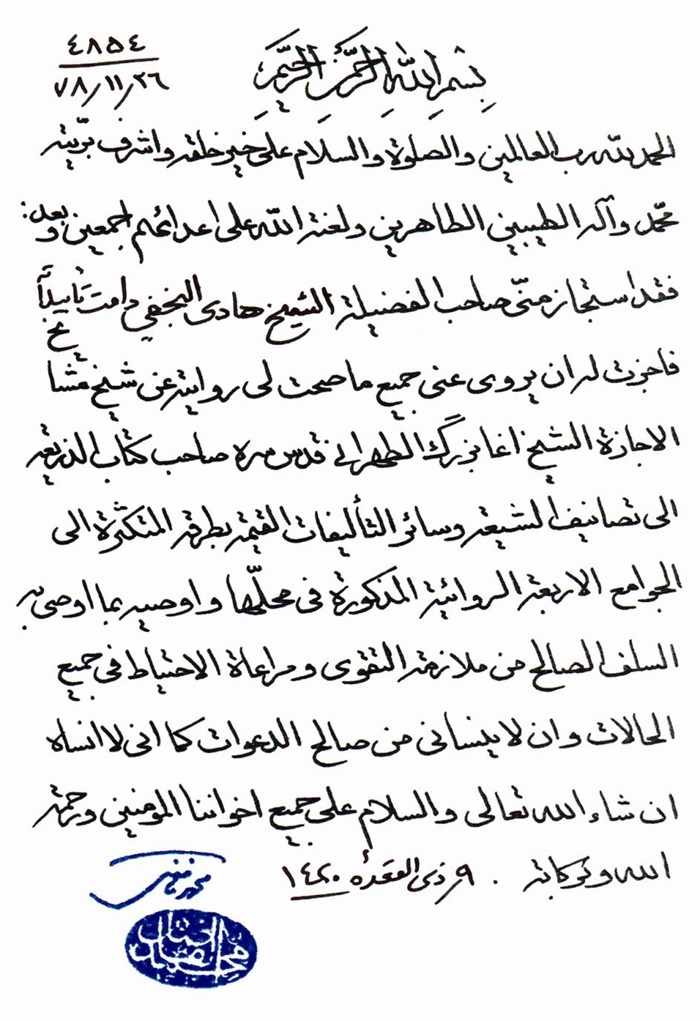 ٤٨٥٤
٧٨/١١/٢٦
بسم الله الرحمن الرحيم
الحمد لله رب العالمين والصلوة والسلام على خير خلقه واشرف بريته
محمّد وآله الطيبين الطاهرين ولعنة الله على اعدائهم اجمعين وبعد:
فقد استجاز منّي صاحب الفضيلة الشيخ هادى النجفي دامت تأييداته
فاجزت له ان يروى عنى جميع ما صحت لى روايته عن شيخ مشايخ
الاجازة الشيخ اغا بزرگ الطهرانى قدس سره صاحب كتاب الذريعه
الى تصانيف الشيعة وسائر التأليفات القيمة بطرقه المتكثرة الى
الجوامع الاربعة الروائية المذكورة فى محلّها واوصيه بما اوصى به
السلف الصالح من ملازمة التقوى ومراعاة الاحتياط فى جميع
الحالات وان لا ينسانى من صالح الدعوات كما انى لا انساه
ان شاء الله تعالى والسلام على جميع اخواننا المومنين ورحمة
الله وبركاته . ٩ ذى القعدة ١٤٢٠